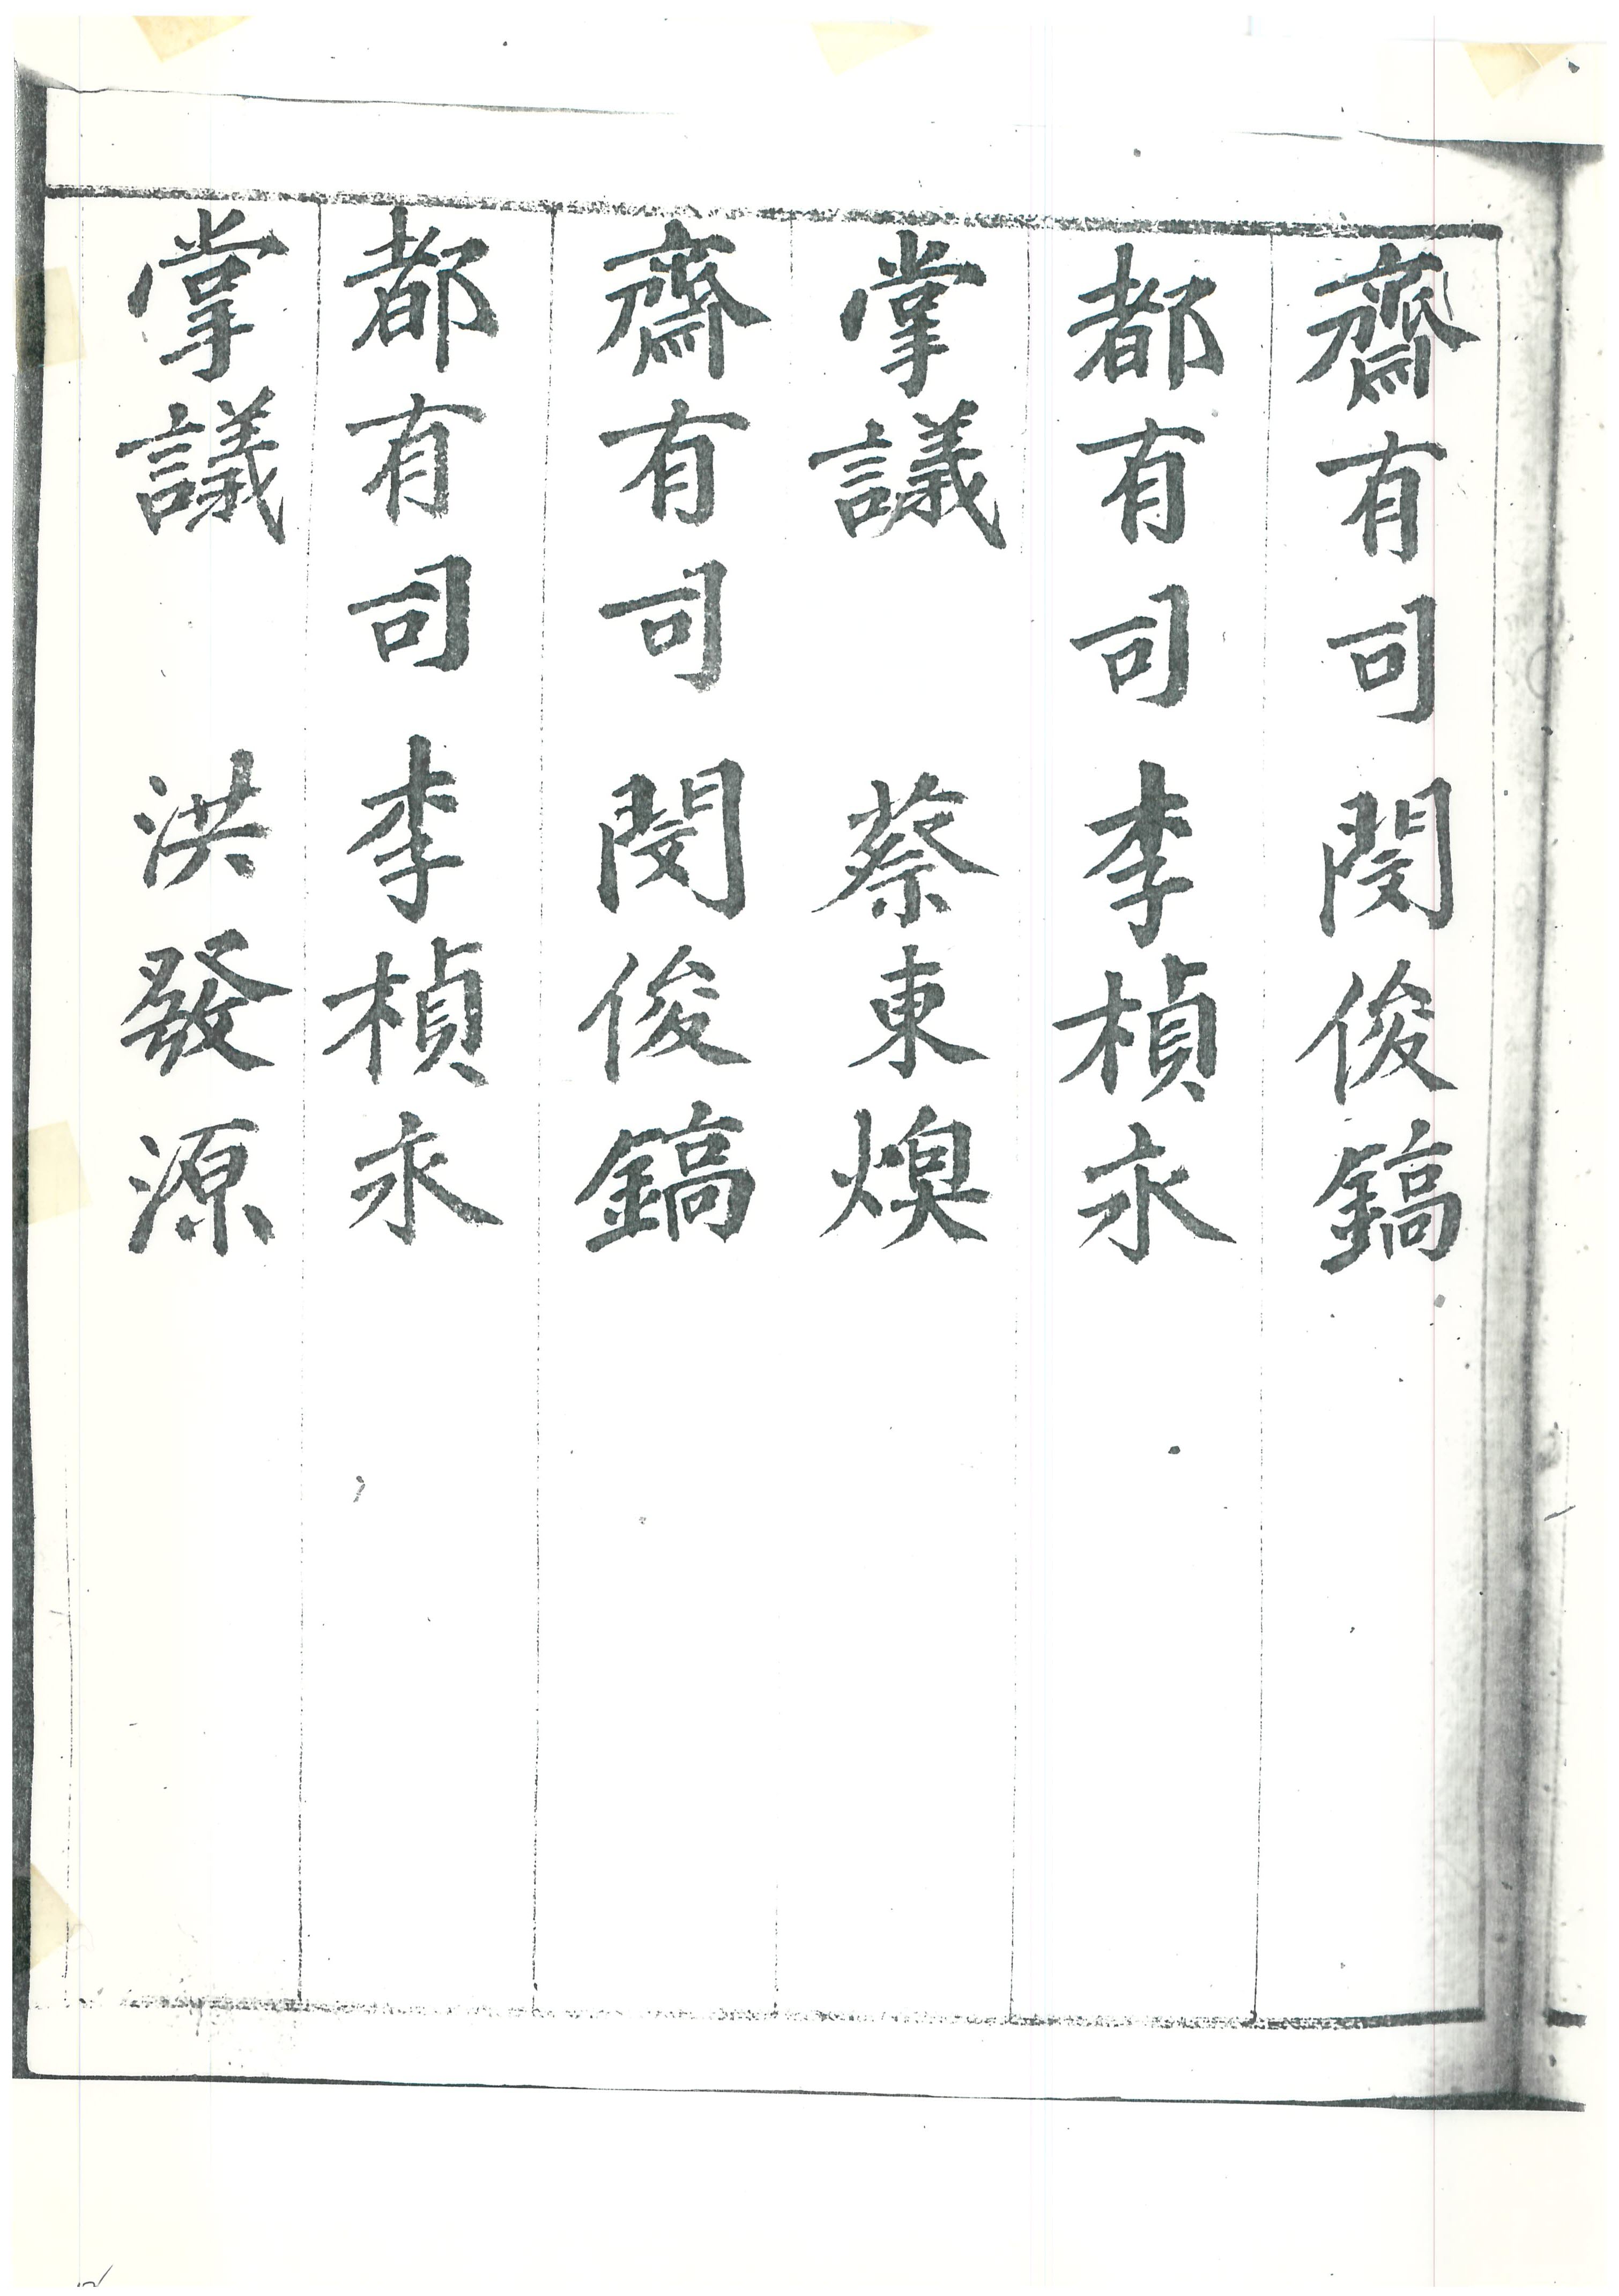 齋有司 閔俊鎬
都有司 李楨永
掌議 蔡東煥
齋有司 閔俊鎬
都有司 李楨永
掌議 洪發源